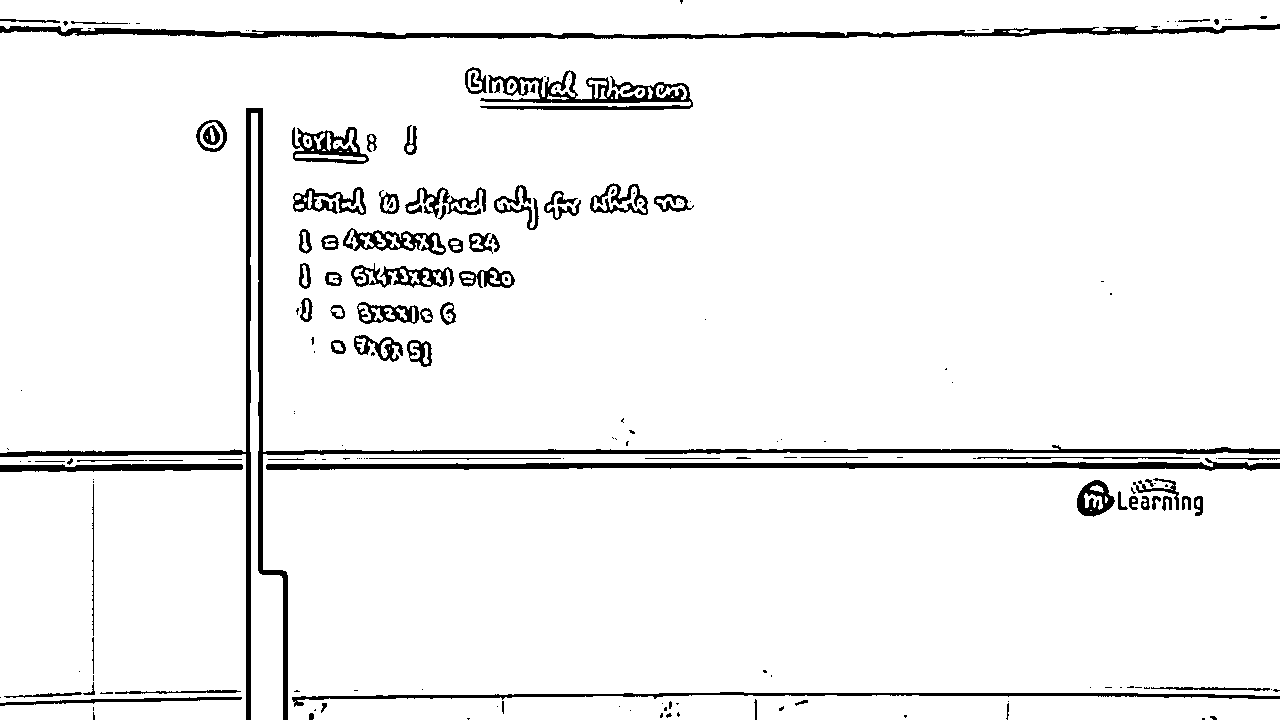 Binomial Theorem
① torial : !
ctorial is defined only for whole no.
! = 4x3x2x1 = 24
! = 5x4x3x2x1 = 120
! = 3x2x1 = 6
= 7x6x5!
m Learning